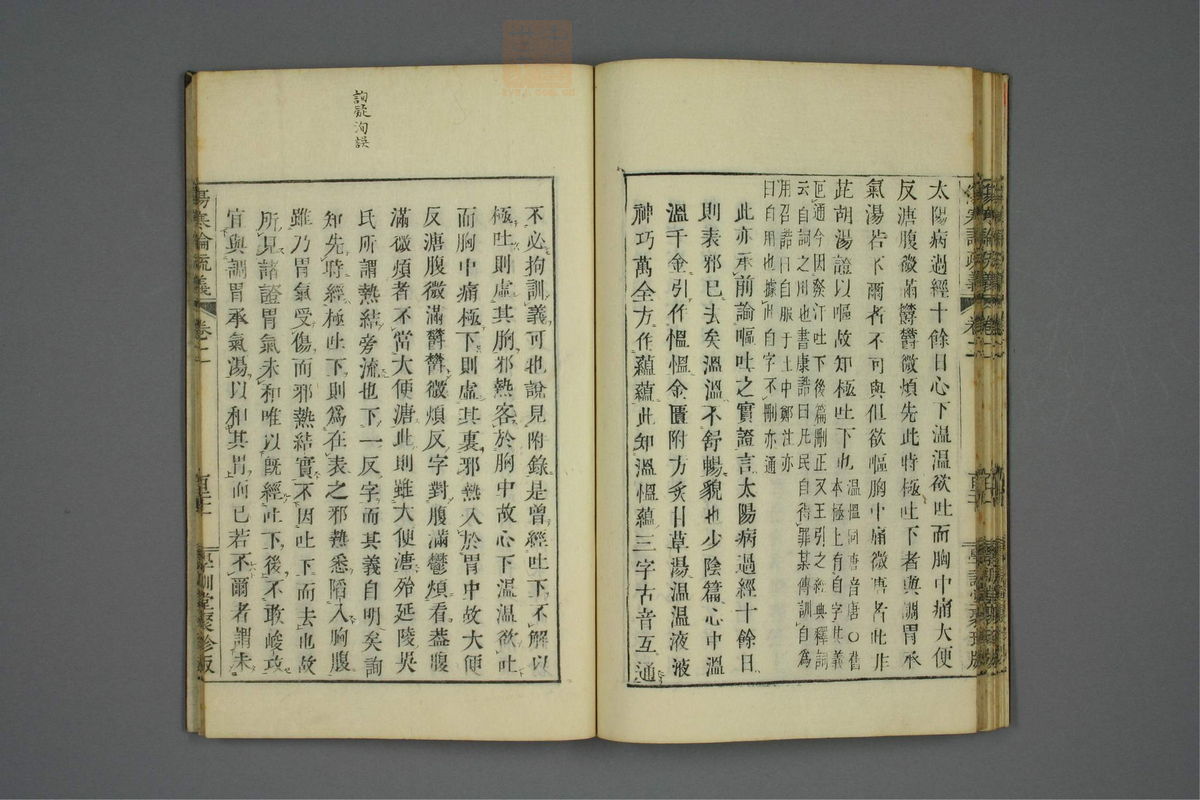 太陽病過經十餘日心下溫溫欲吐而胸中痛大便
反溏腹微滿鬱鬱微煩先此時極吐下者與調胃承
氣湯若不爾者不可與但欲嘔胸中痛微溏者此非
茈胡湯證以嘔故知極吐下也
溫慍同唐音唐○舊
本極上有自字其義
叵通今因發汗吐下後篇刪正又王引之經典釋詞
云自詞之用也書康誥曰凡民自得罪某傳訓自為
用召誥曰自服于土中鄭注亦
曰自用也據此自字不刪亦通
此亦承前論嘔吐之實證言太陽病過經十餘日
則表邪已去矣溫溫不舒暢貌也少陰篇心中溫
溫千金引作慍慍金匱附方炙甘草湯溫溫液液
神巧萬全方作蘊蘊此知溫慍蘊三字古音互通
不必拘訓義可也說見附錄是曾經吐下不解以
極吐則虛其胸邪熱客於胸中故心下溫溫欲吐
而胸中痛極下則虛其裏邪熱入於胃中故大便
反溏腹微滿鬱鬱微煩反字對腹滿鬱煩看蓋腹
滿微煩者不當大便溏此則雖大便溏殆延陵吳
氏所謂熱結旁流也下一反字而其義自明矣詢
知先時經極吐下則為在表之邪熱悉陷入胸腹
雖乃胃氣受傷而邪熱結實不因吐下而去也故
所見諸證胃氣未和唯以既經吐下後不敢峻攻
宜與調胃承氣湯以和其胃而已若不爾者謂未
詢疑洵誤
傷寒論疏義 卷二
學訓堂聚珍版